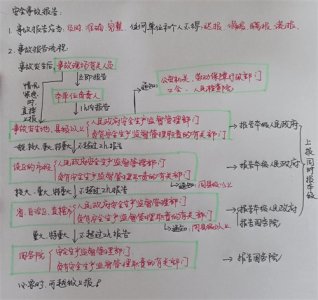 安全事故报告.
1. 事故报告应当: 及时, 准确, 完整. 任何单位和个人不得: 迟报, 漏报, 瞒报, 谎报.
2. 事故报告流程:
事故发生后: 事故现场有关人员
立即报告
情况紧急时直接上报
本单位负责人
通知: 公安机关, 劳动保障行政部门
工会, 人民检察院
1h内报告
事故发生地, 县级以上 人民政府安全生产监督管理部门
负有安全生产监督管理职责的有关部门
报告本级人民政府
一般, 较大, 重大, 特重大 不超过2h报告
通知: 同县级以上
设区的市级 人民政府安全生产监督管理部门
负有安全生产监督管理职责的有关部门
报告本级人民政府
通知: 同县级以上
较大, 重大, 特重大 不超过2h报告
省, 自治区, 直辖市 人民政府安全生产监督管理部门
负有安全生产监督管理职责的有关部门
报告本级人民政府
报告国务院
通知: 同县级以上
重大, 特重大 不超过2h报告
国务院 安全生产监督管理部门
负有安全生产监督管理职责的有关部门
报告国务院
上报同时报本级
必要时, 可越级上报!